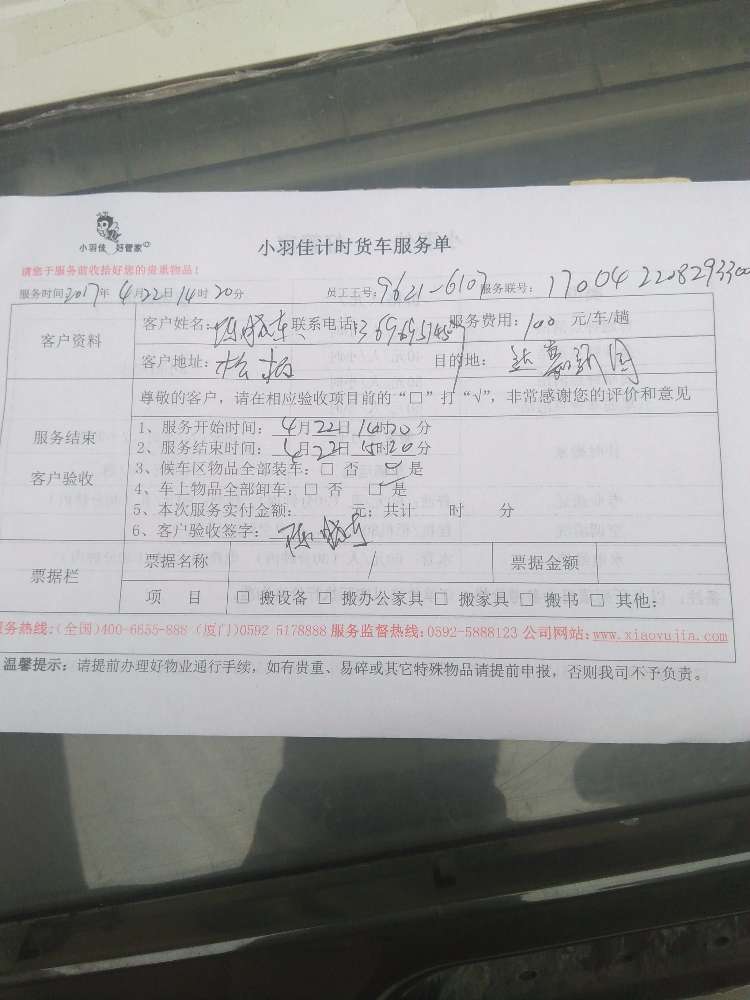 小羽佳 好管家
小羽佳计时货车服务单
请您于服务前收拾好您的贵重物品！
服务时间2017年4月22日14时20分 员工工号：9621-6107 服务联号：170042208293300
客户资料
客户姓名： 联系电话： 服务费用：100 元/车/趟
客户地址：松柏 目的地：
尊敬的客户，请在相应验收项目前的“□”打“√”，非常感谢您的评价和意见
服务结束
客户验收
1、服务开始时间：4月22日14时20分
2、服务结束时间：4月22日15时20分
3、候车区物品全部装车：□ 否 ☑ 是
4、车上物品全部卸车：□ 否 ☑ 是
5、本次服务实付金额： 元；共计 时 分
6、客户验收签字：
票据栏
票据名称 / 票据金额
项 目 □ 搬设备 □ 搬办公家具 □ 搬家具 □ 搬书 □ 其他：
服务热线：(全国)400-6855-888 (厦门)0592 5178888 服务监督热线：0592-5888123 公司网站：www.xiaoyujia.com
温馨提示：请提前办理好物业通行手续，如有贵重、易碎或其它特殊物品请提前申报，否则我司不予负责。